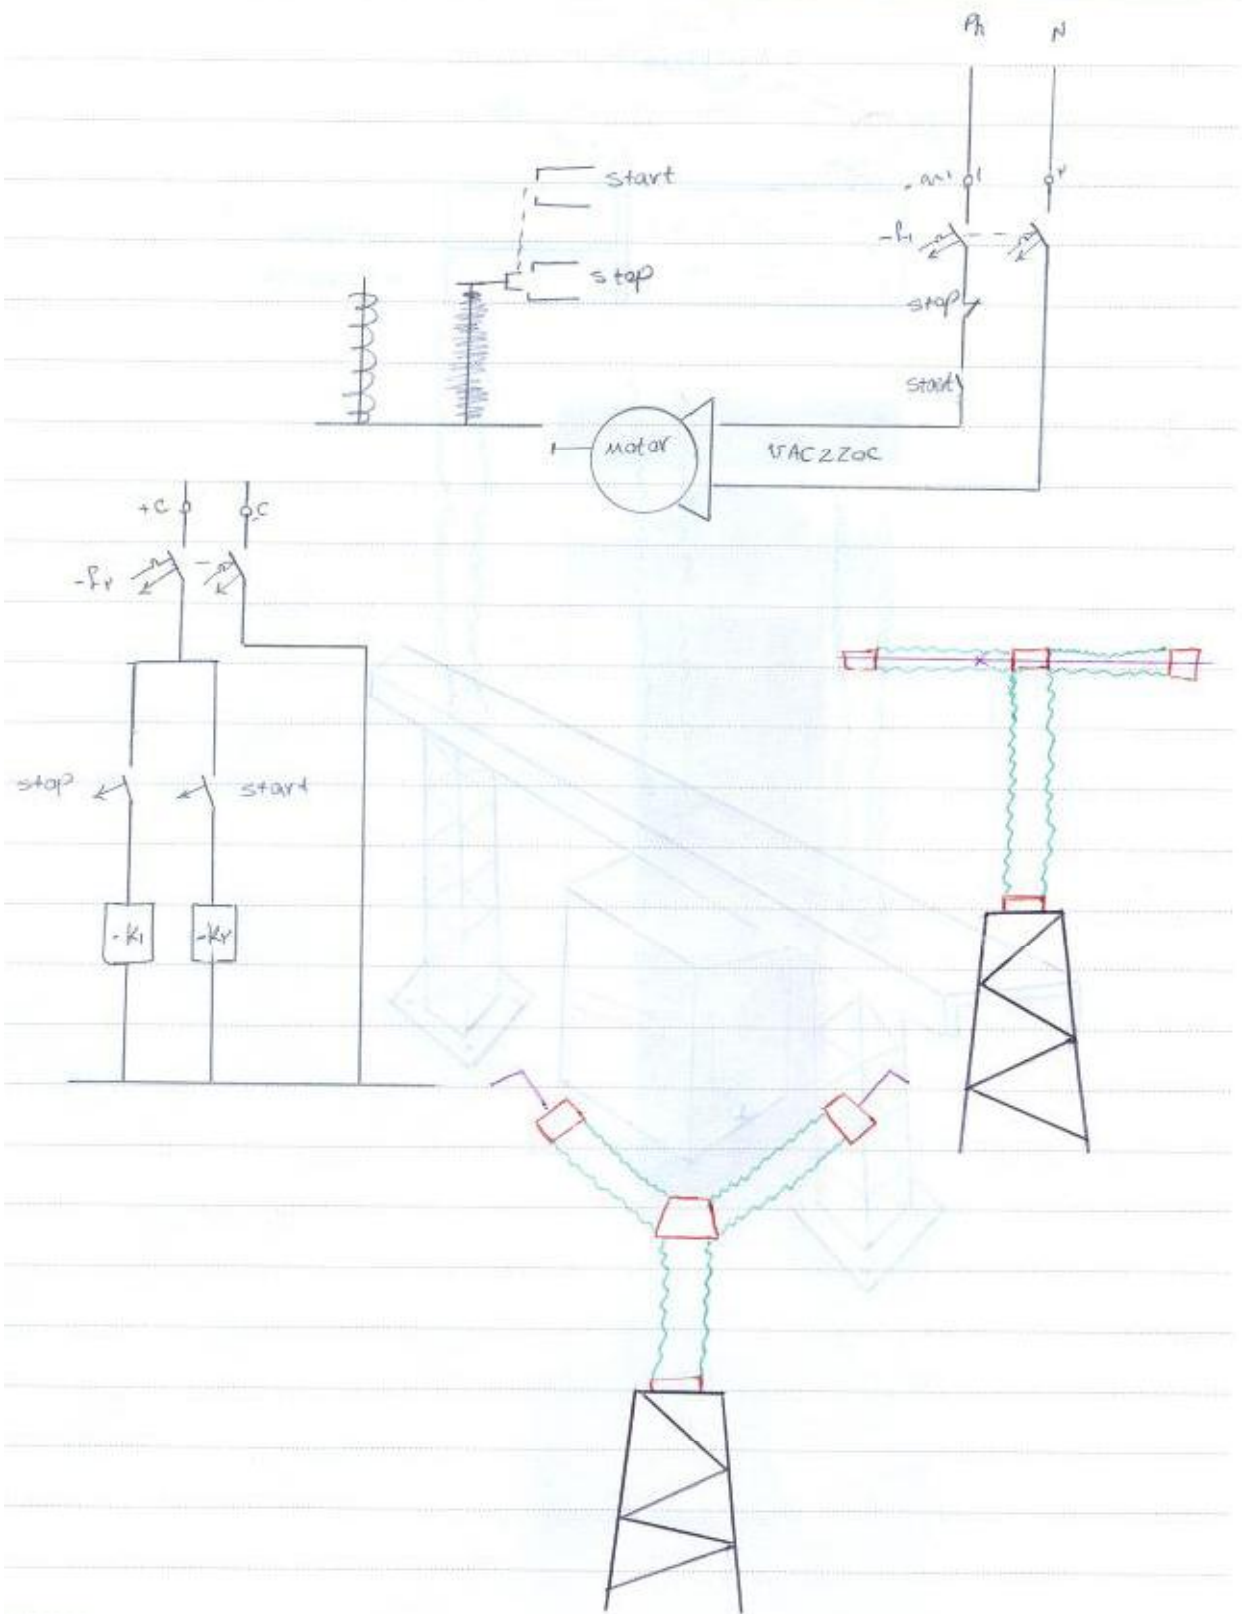 Ph N
start
1 ۲
-f1
stop
stop
start
Motor
VAC220C
+C -C
-f۲
stop start
-k1 -k۲